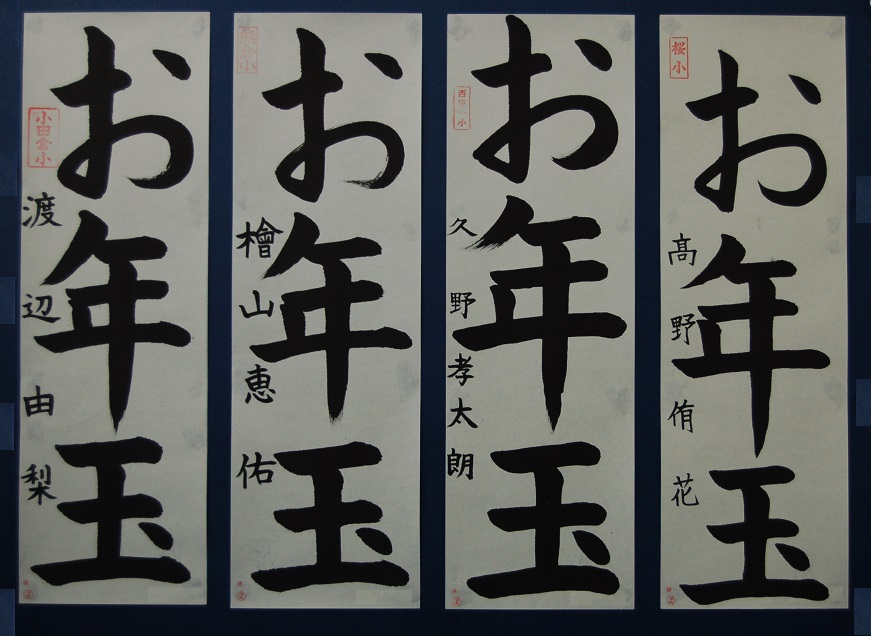 お年玉
小田倉小
渡辺由梨
お年玉
檜山恵佑
お年玉
久野孝太朗
お年玉
桜小
髙野侑花